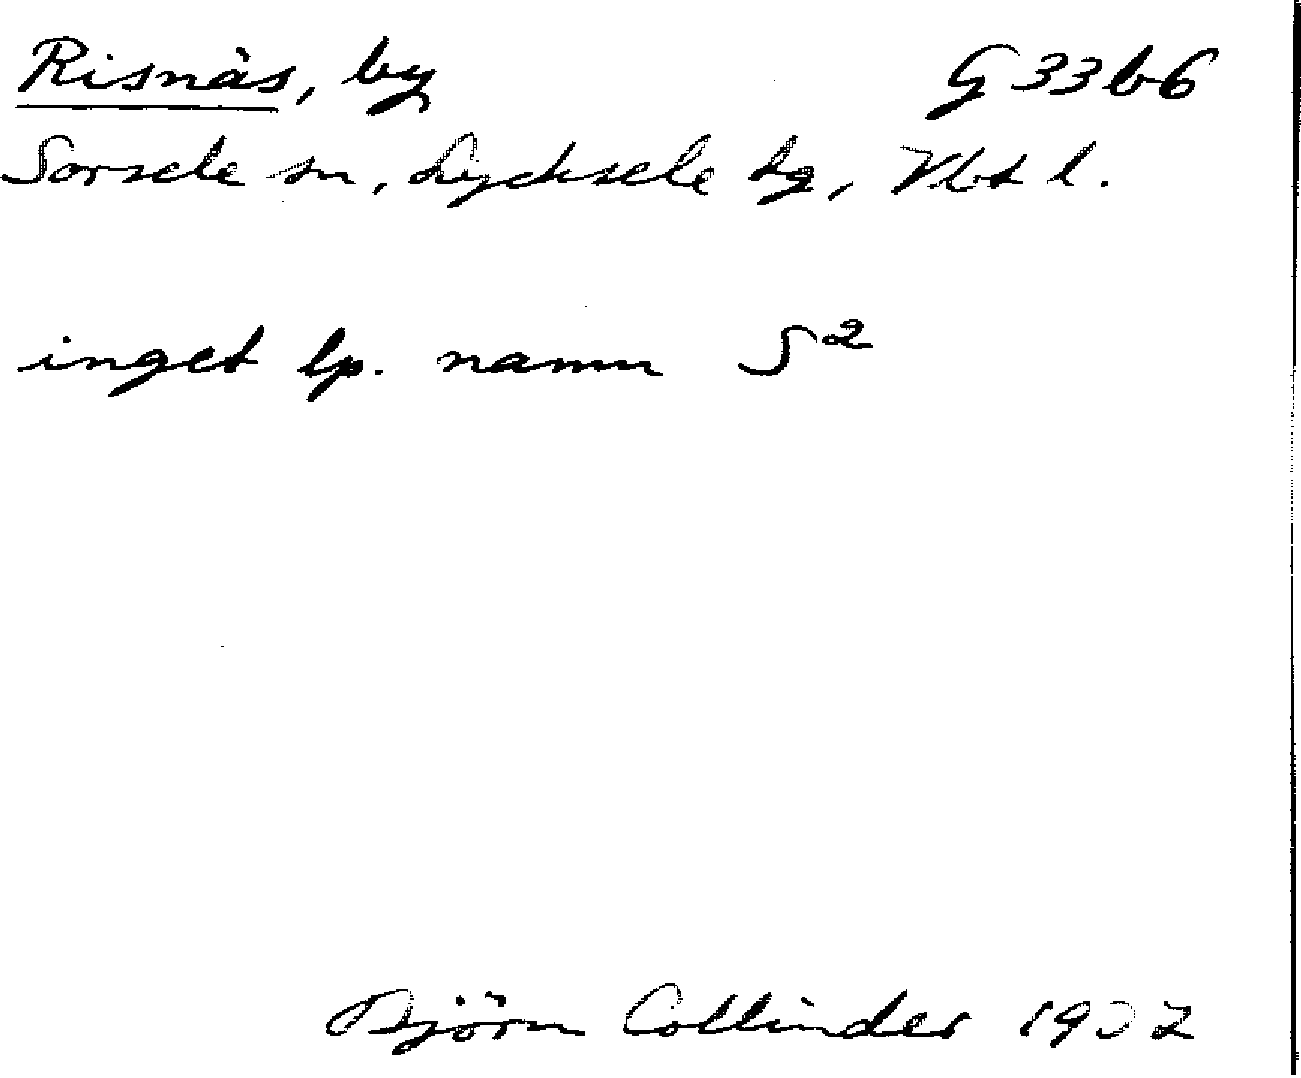 Risnäs, by G 33 b 6
Sorsele sn, Lycksele lg, Vbt l.
inget lp. namn S²
Björn Collinder 1932